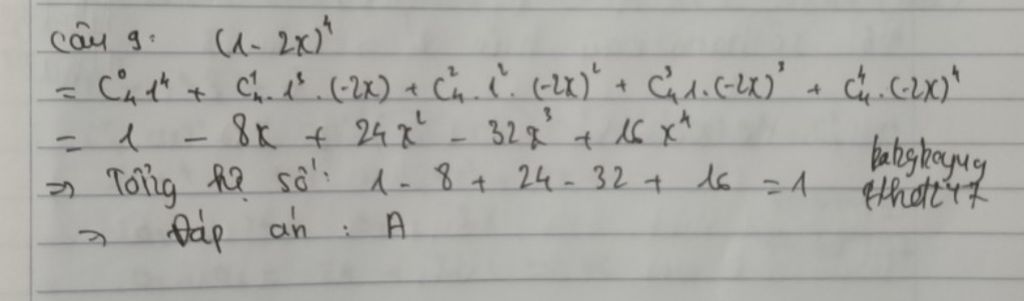 Câu 9: (1 - 2x)⁴
= C₄⁰ 1⁴ + C₄¹. 1³. (-2x) + C₄². 1². (-2x)² + C₄³ 1. (-2x)³ + C₄⁴. (-2x)⁴
= 1 - 8x + 24x² - 32x³ + 16x⁴
⇒ Tổng hệ số: 1 - 8 + 24 - 32 + 16 = 1
⇒ Đáp án : A